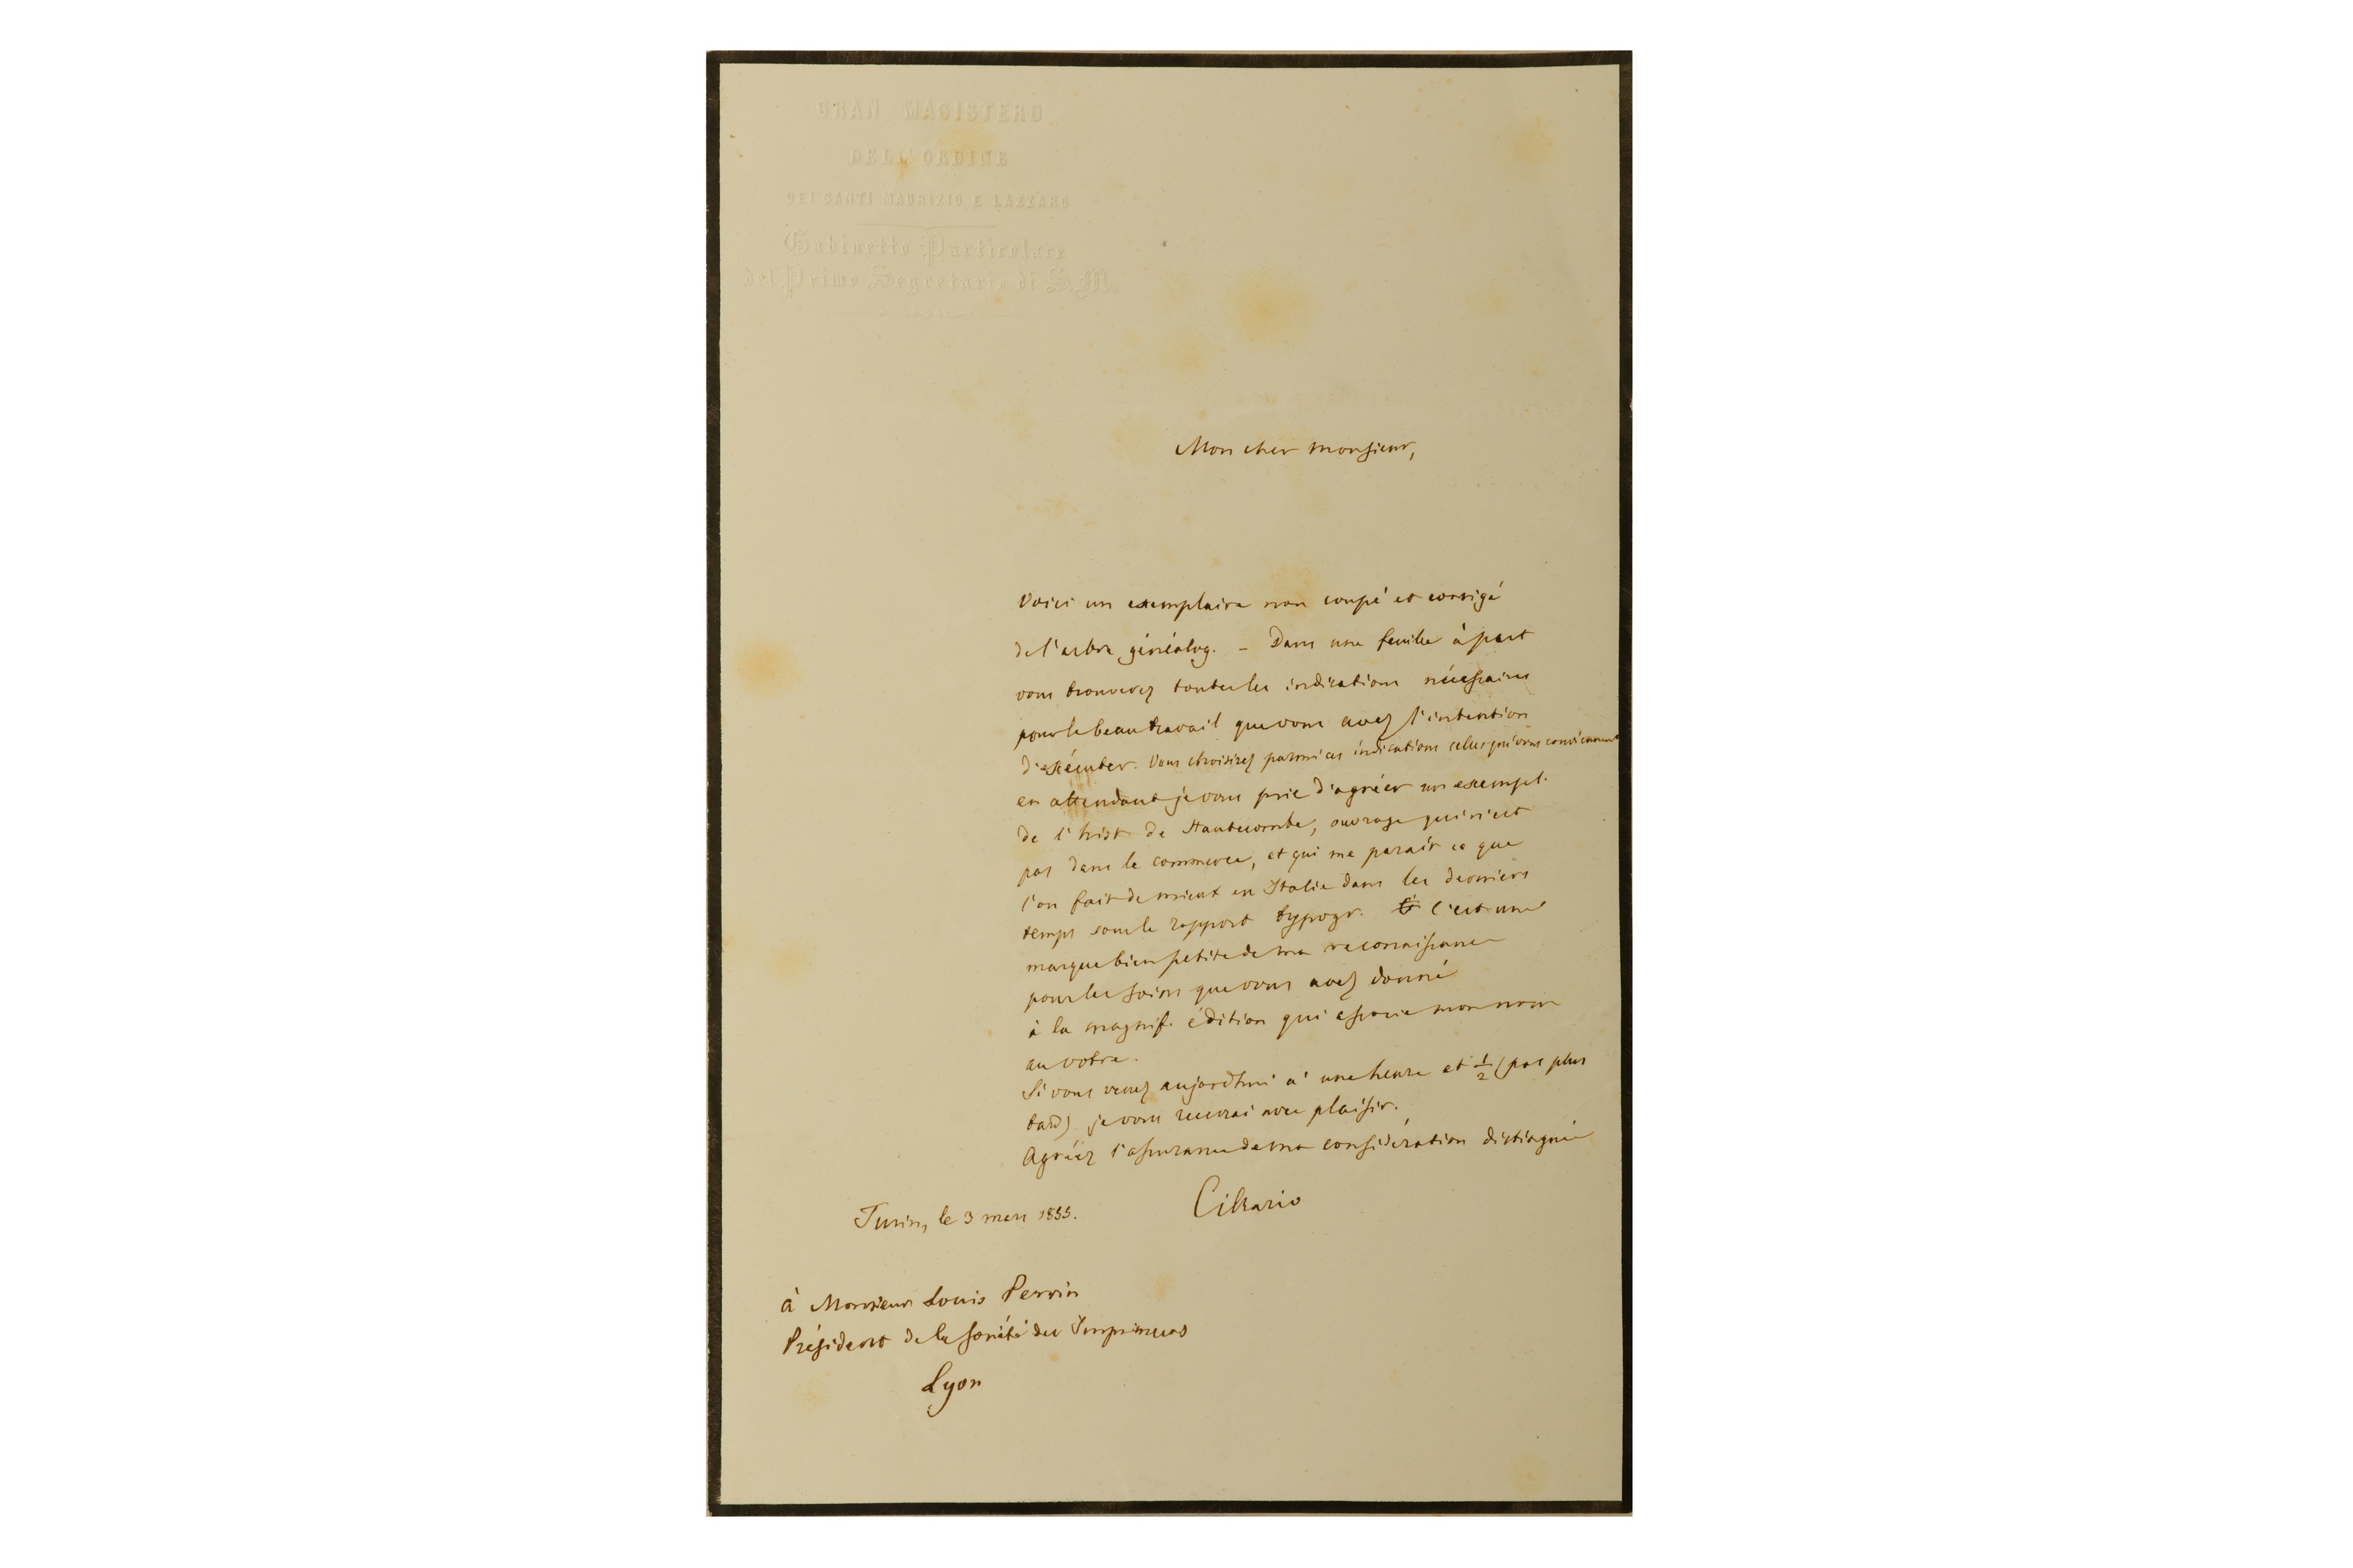 GRAN MAGISTERO
DELL'ORDINE
DEI SANTI MAURIZIO E LAZZARO
Gabinetto Particolare
del Primo Segretario di S.M.
Mon cher monsieur,
Voici un exemplaire non coupé et corrigé
de l'arbre généalog. - Dans une feuille à part
vous trouverez toutes les indications nécessaires
pour le beau travail que vous avez l'intention
d'exécuter. Vous choisirez parmi ces indications celles qui vous conviennent
en attendant je vous prie d'agréer un exempl.
de l'hist. de Hautecombe, ouvrage qui n'est
pas dans le commerce, et qui me parait ce que
l'on fait de mieux en Italie dans les derniers
temps sous le rapport typogr. C'est une
marque bien petite de ma reconnaissance
pour les soins que vous avez donné
à la magnif. édition qui associe mon nom
au votre.
Si vous venez aujord'hui à une heure et 1/2 (pas plus
tard) je vous recevrai avec plaisir.
Agréez l'assurance de ma considération distinguée
Cibrario
Turin, le 3 mars 1855.
à Monsieur Louis Perrin
Président de la Société des Imprimeurs
Lyon